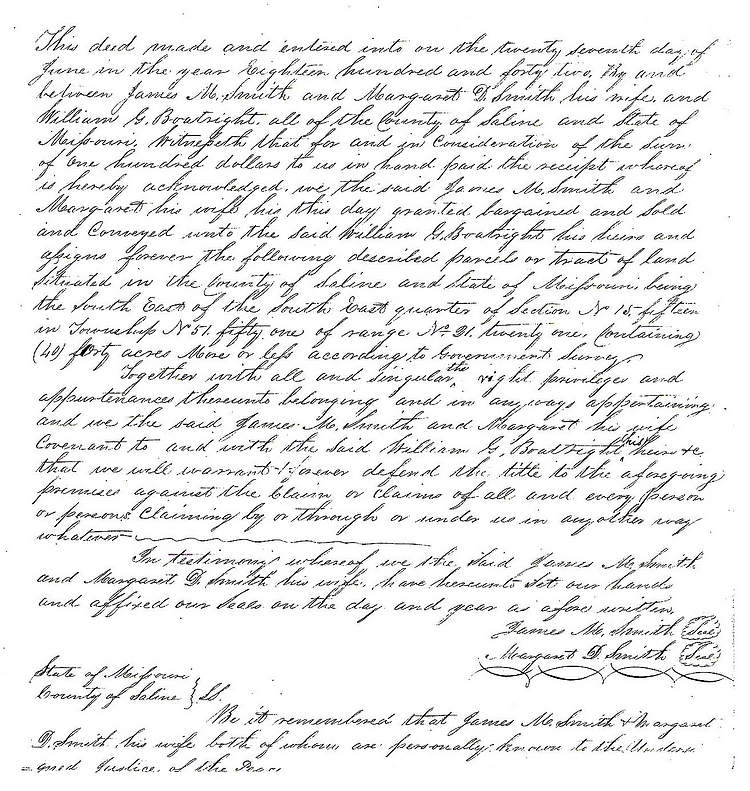 This deed made and entered into on the twenty seventh day of
June in the year Eighteen hundred and forty two, By and
between James M. Smith and Margaret D. Smith his wife, and
William G. Boatright, all of the County of Saline and State of
Missouri, Witnesseth that for and in Consideration of the sum
of one hundred dollars to us in hand paid the receipt whereof
is hereby acknowledged. we the said James M. Smith and
Margaret his wife his this day granted bargained and Sold
and Conveyed unto the said William G. Boatright his heirs and
assigns forever the following described parcels or tract of land
Situated in the County of Saline and State of Missouri, being
the South East of the South East quarter of Section No 15 fifteen
in Township No 51, fifty one of range No. 21. twenty one, Containing
(40) forty acres More or less according to Government Survey
Together with all and singular the right privileges and
appurtenances thereunto belonging and in any ways appertaining
and we the said James M. Smith and Margaret his wife
Covenant to and with the said William G. Boatright his heirs &c
that we will warrant & forever defend the title to the aforegoing
premises against the Claim or Claims of all and every person
or persons Claiming by or through or under us in any other way
whatever
In testimony whereof we the said James M. Smith
and Margaret D. Smith his wife, have hereunto set our hands
and affixed our Seals on the day and year as afore written,
James M. Smith (Seal)
Margaret D. Smith (Seal)
State of Missouri
County of Saline } SS.
Be it remembered that James M. Smith & Margaret
D. Smith his wife both of whom are personally known to the Undersi
=gned Justice of the Peace